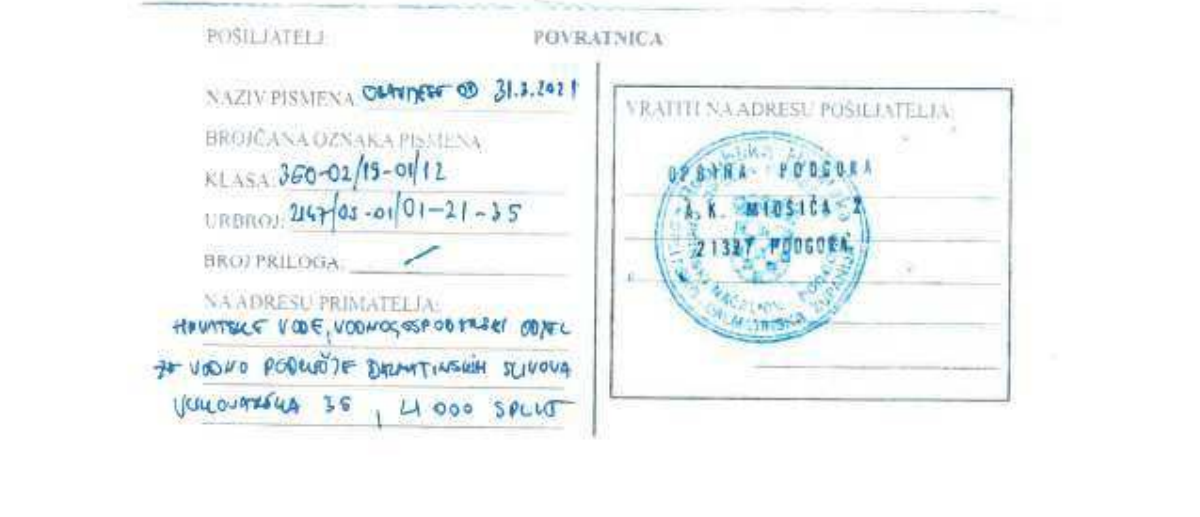 POŠILJATELJ:
POVRATNICA
NAZIV PISMENA: OBAVIJEST OD 31.3.2021
BROJČANA OZNAKA PISMENA:
KLASA: 360-02/19-01/12
URBROJ: 2147/05-01/01-21-35
BROJ PRILOGA: /
NA ADRESU PRIMATELJA:
HRVATSKE VODE, VODNOGOSPODARSKI ODJEL
ZA VODNO PODRUČJE DALMATINSKIH SLIVOVA
VUKOVARSKA 35, 21 000 SPLIT
VRATITI NA ADRESU POŠILJATELJA:
OPĆINA PODGORA
A.K. MIOŠIĆA 2
21327 PODGORA